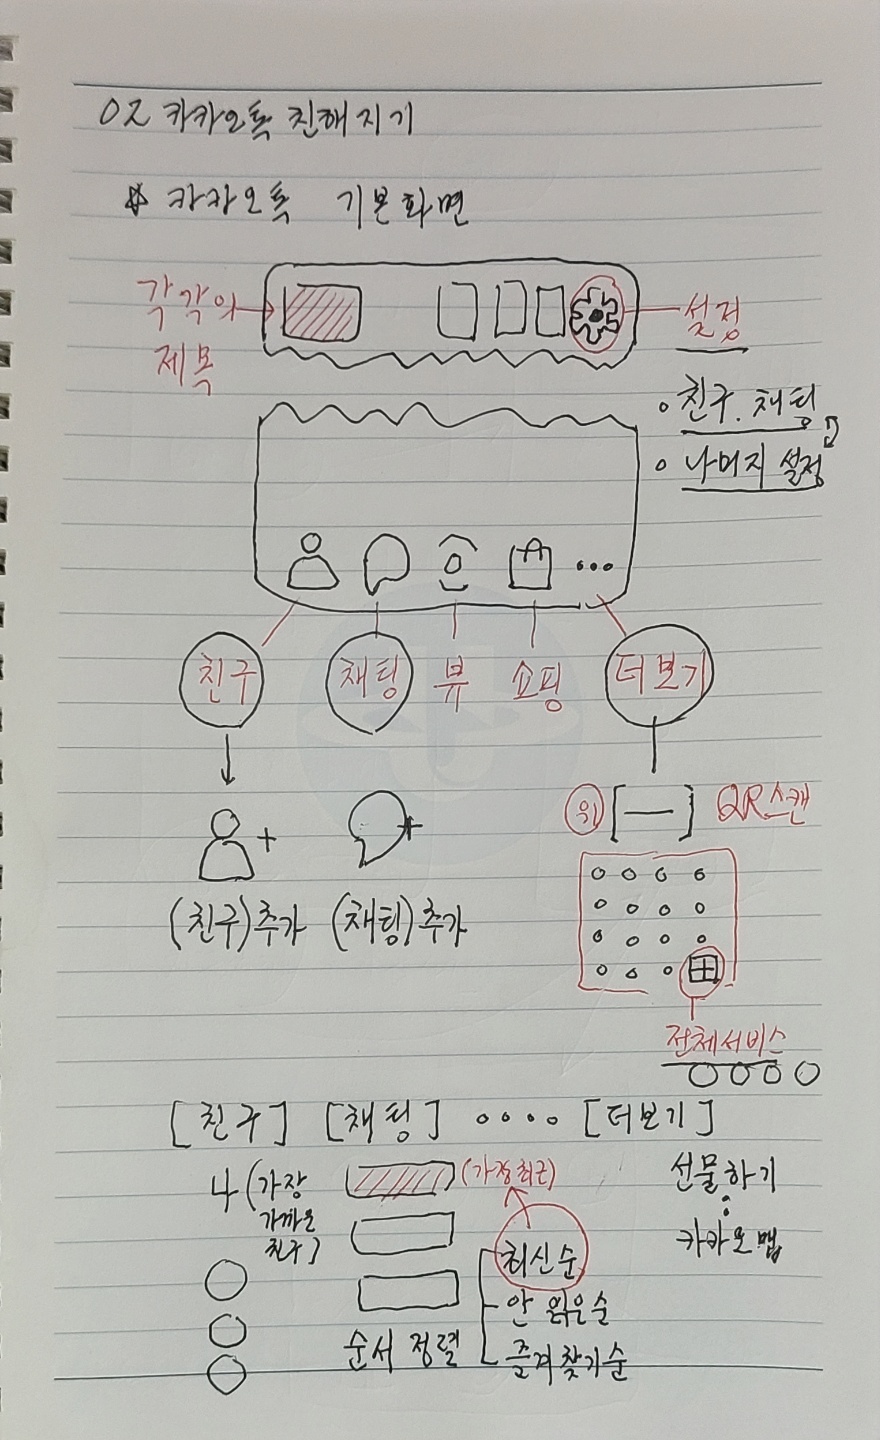 02 카카오톡 친해지기
☆ 카카오톡 기본화면
각각의
제목
설정
친구. 채팅
나머지 설정
...
친구 채팅 뷰 쇼핑 더보기
위 [一] QR스캔
(친구)추가 (채팅)추가
전체서비스
[친구] [채팅] .... [더보기]
나 (가장
가까운
친구)
(가장최근)
선물하기
:
카카오맵
최신순
안 읽은순
순서 정렬
즐겨찾기순